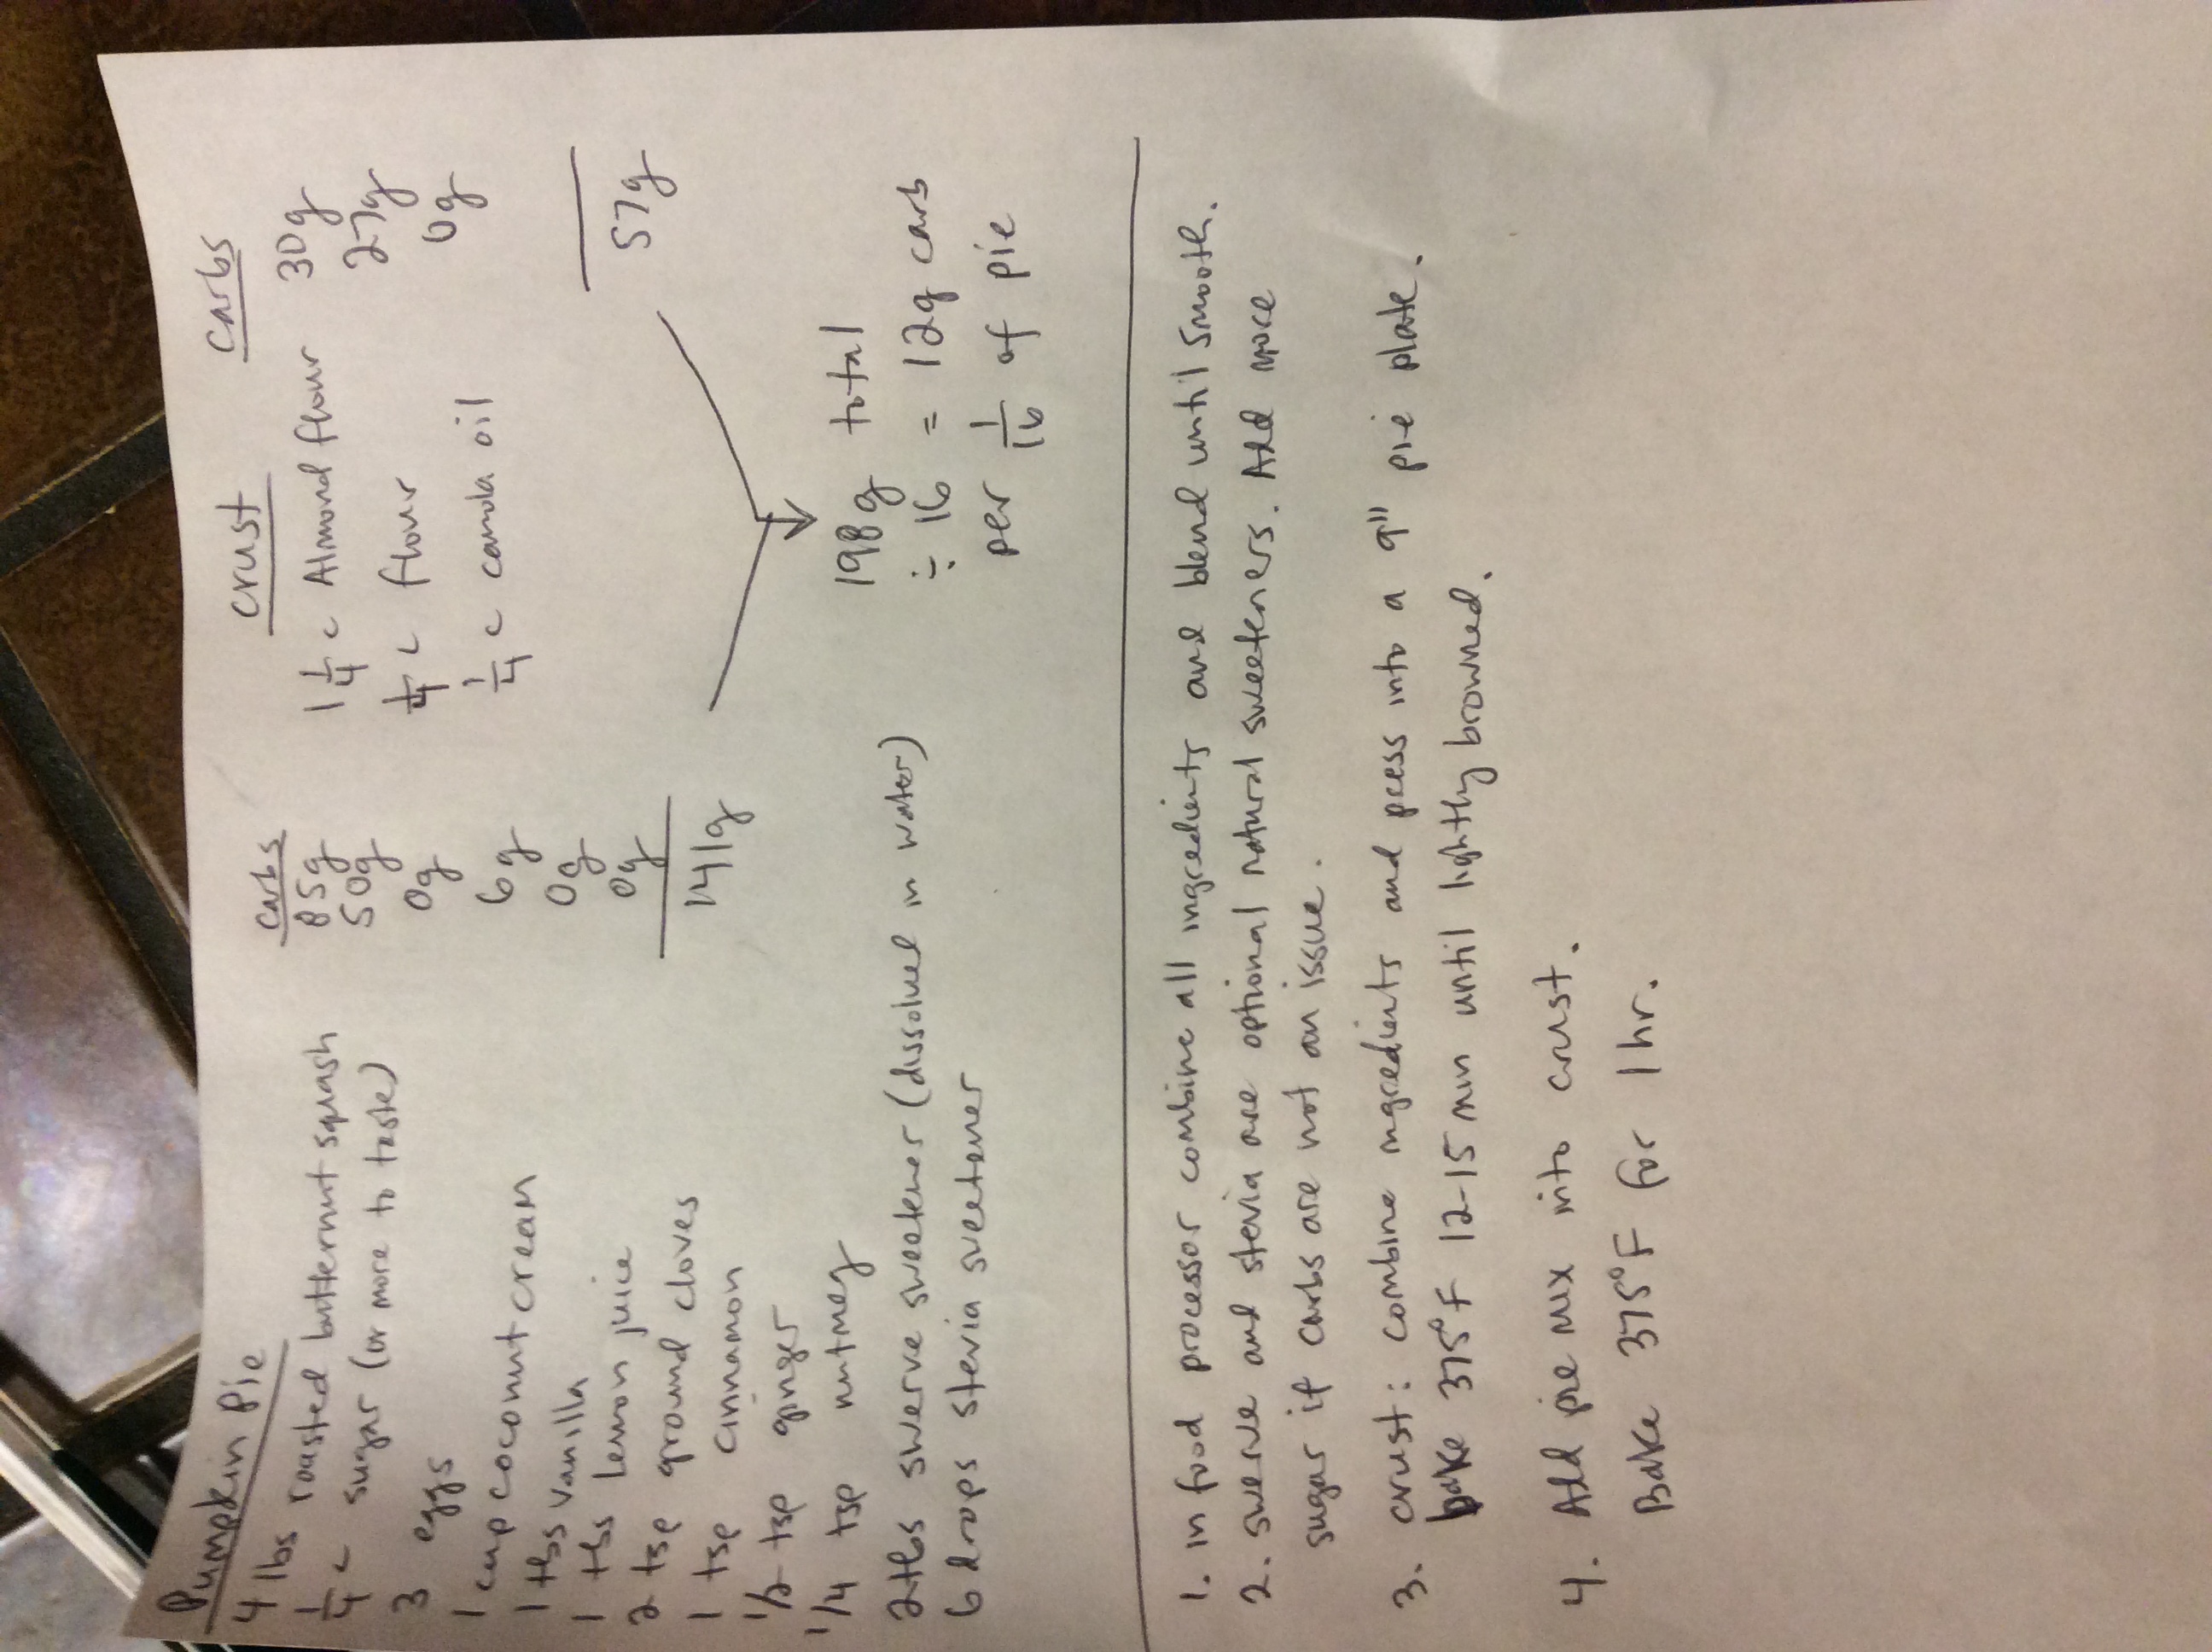 Pumpkin Pie
carbs
4 lbs roasted butternut squash 85g
1/4 c sugar (or more to taste) 50g
3 eggs 0g
1 cup coconut cream 6g
1 tbs vanilla 0g
1 tbs lemon juice 0g
141g
2 tsp ground cloves
1 tsp cinnamon
1/2 tsp ginger
1/4 tsp nutmeg
2 tbs swerve sweetener (dissolved in water)
6 drops stevia sweetener
crust carbs
1 1/4 c Almond flour 30g
1/4 c flour 27g
1/4 c canola oil 0g
57g
198g total
÷ 16 = 12g carb
per 1/16 of pie
1. in food processor combine all ingredients and blend until smooth.
2. swerve and stevia are optional natural sweeteners. Add more
sugar if carbs are not an issue.
3. crust: combine ingredients and press into a 9" pie plate.
bake 375°F 12-15 min until lightly browned.
4. Add pie mix into crust.
Bake 375°F for 1 hr.